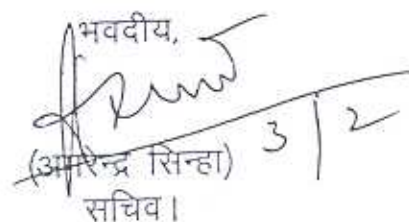 भवदीय,
3|2
(अमरेन्द्र सिन्हा)
सचिव।